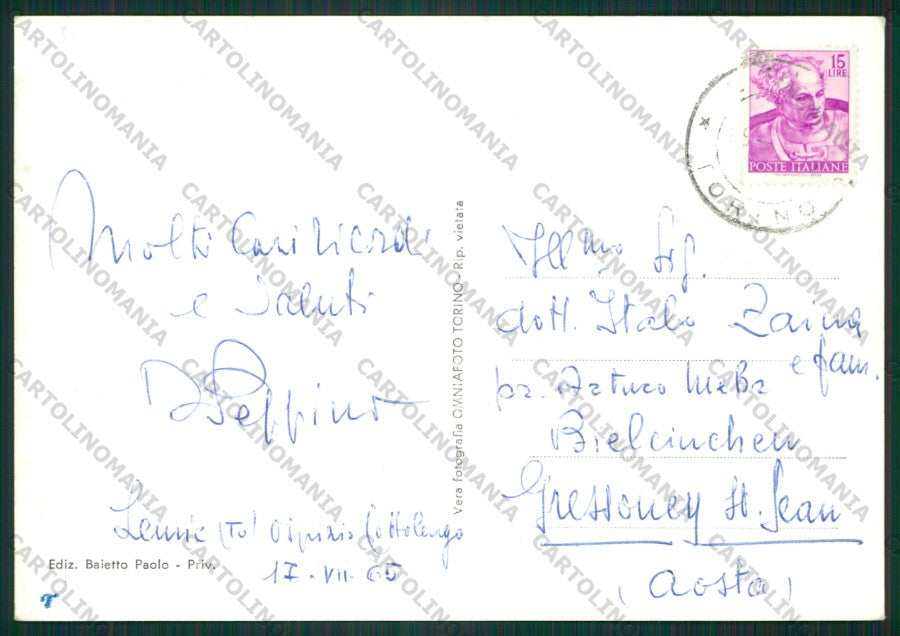 15
LIRE
POSTE ITALIANE
TORINO
Molti Cari Ricordi
e Saluti
D Peppino
Lemie (To) Ospizio Cottolengo
17-VII-65
Ediz. Baietto Paolo - Priv.
Vera fotografia OMNIAFOTO TORINO - Rip. vietata
Ill mo Sig.
dott. Italo Zaina
e fam.
pr. Arturo
Bielcinchen
Gressoney St. Jean
(Aosta)
CARTOLINOMANIA